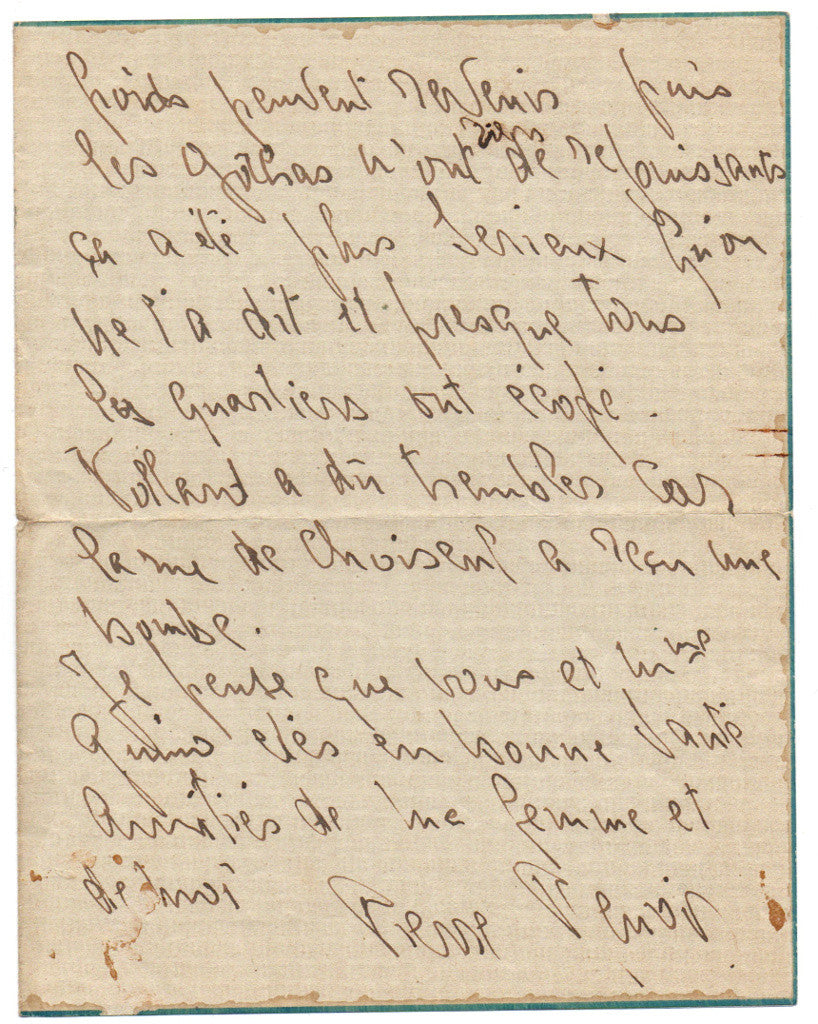 froids peuvent revenir puis
les Gothas n'ont rien de réjouissants
ça a été plus serieux qu'on
ne l'a dit et presque tous
les quartiers ont écopé.
Vollard a dû trembler car
la rue de Choiseul a reçu une
bombe.
Je pense que vous et Mme
êtes en bonne santé
Amitiés de ma femme et
de moi
Pierre